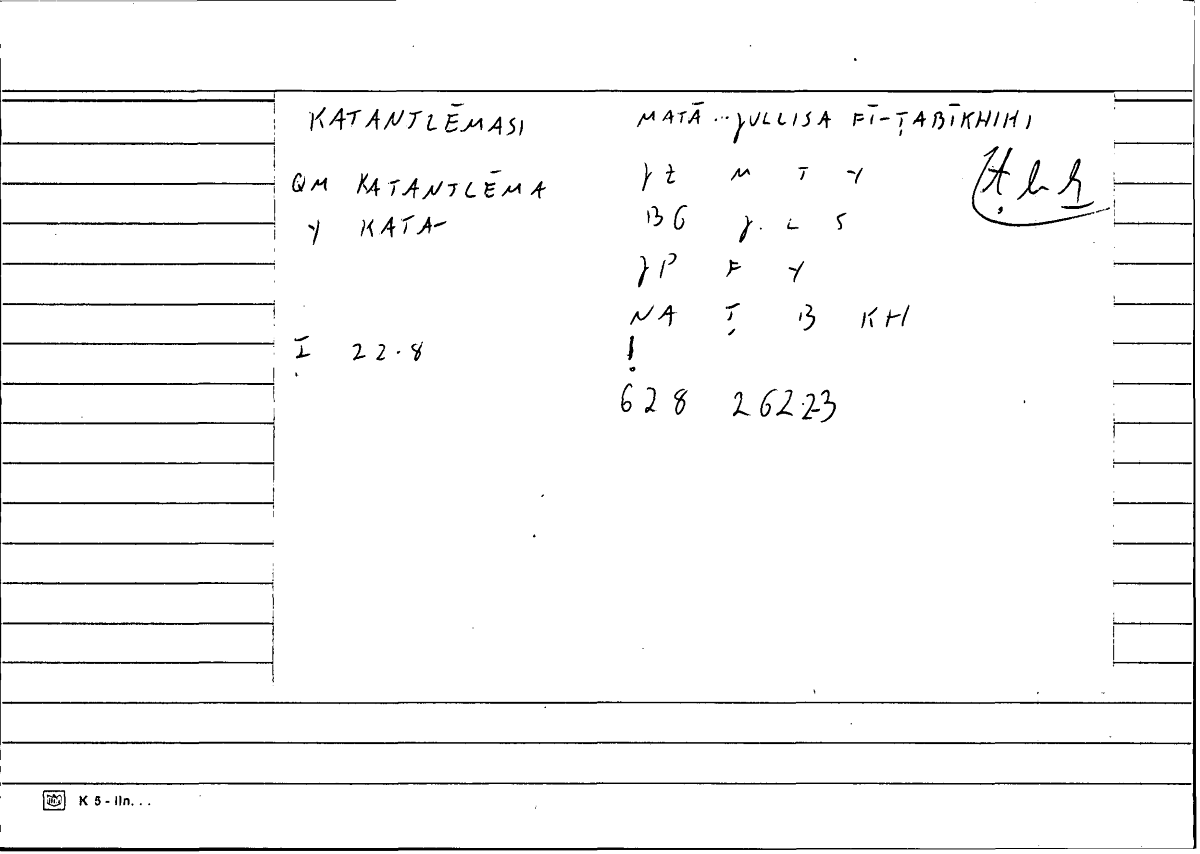 KATANTLĒMASI MATĀ..γULLISA FĪ-ṬABĪKHIHI
QM KATANTLĒMA γZ M T Y
Y KATA- BG γ. L S
γP F Y
NA Ṭ B KH
Ṭ 22.8 !
628 262.23
K 5 - IIn...